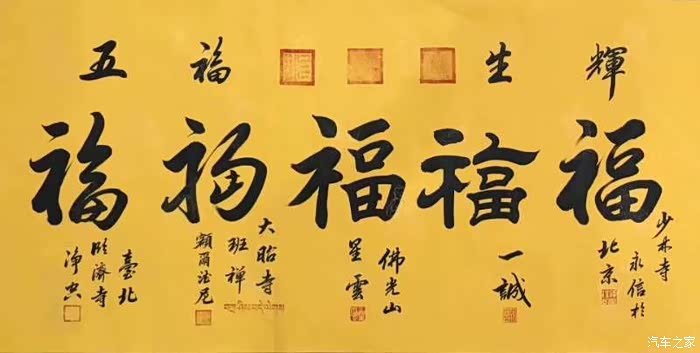 五福生輝
福福福福福
少林寺
永信於
北京
一誠
佛光山
星雲
大昭寺
班禪
額爾德尼
臺北
臨濟寺
淨空
汽车之家